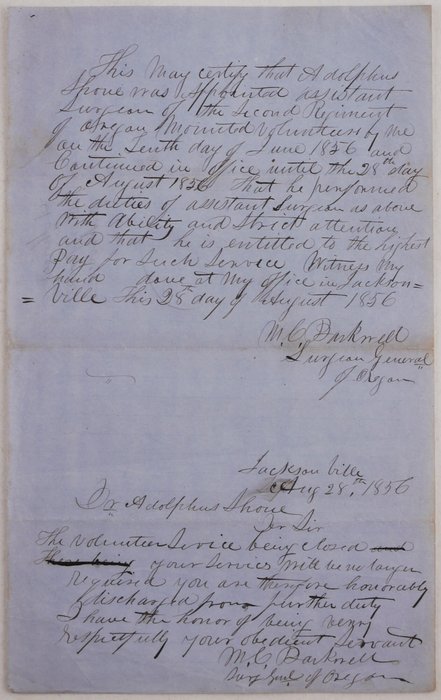 This May certify that Adolphus
Shoue was appointed assistant
Surgeon of the Second Regiment
of Oregon Mounted Volunteers by me
on the Tenth day of June 1856 and
Continued in office until the 28th day
of August 1856 That he performed
the duties of assistant Surgeon as above
With Ability and strict attention
and that he is entitled to the highest
Pay for Such Service Witness My
hand done at My office in Jackson=
=ville This 28th day of August 1856
M. C. Barkwell
Surgeon General
of Oregon
Jacksonville
Aug 28th 1856
Dr Adolphus Shoue
Dr Sir
The Volunteer Service being closed and
your Services will be no longer
required you are therefore honorably
discharged from further duty
I have the honor of being very
respectfully your obedient Servant
M. C. Barkwell
Surg Genl of Oregon